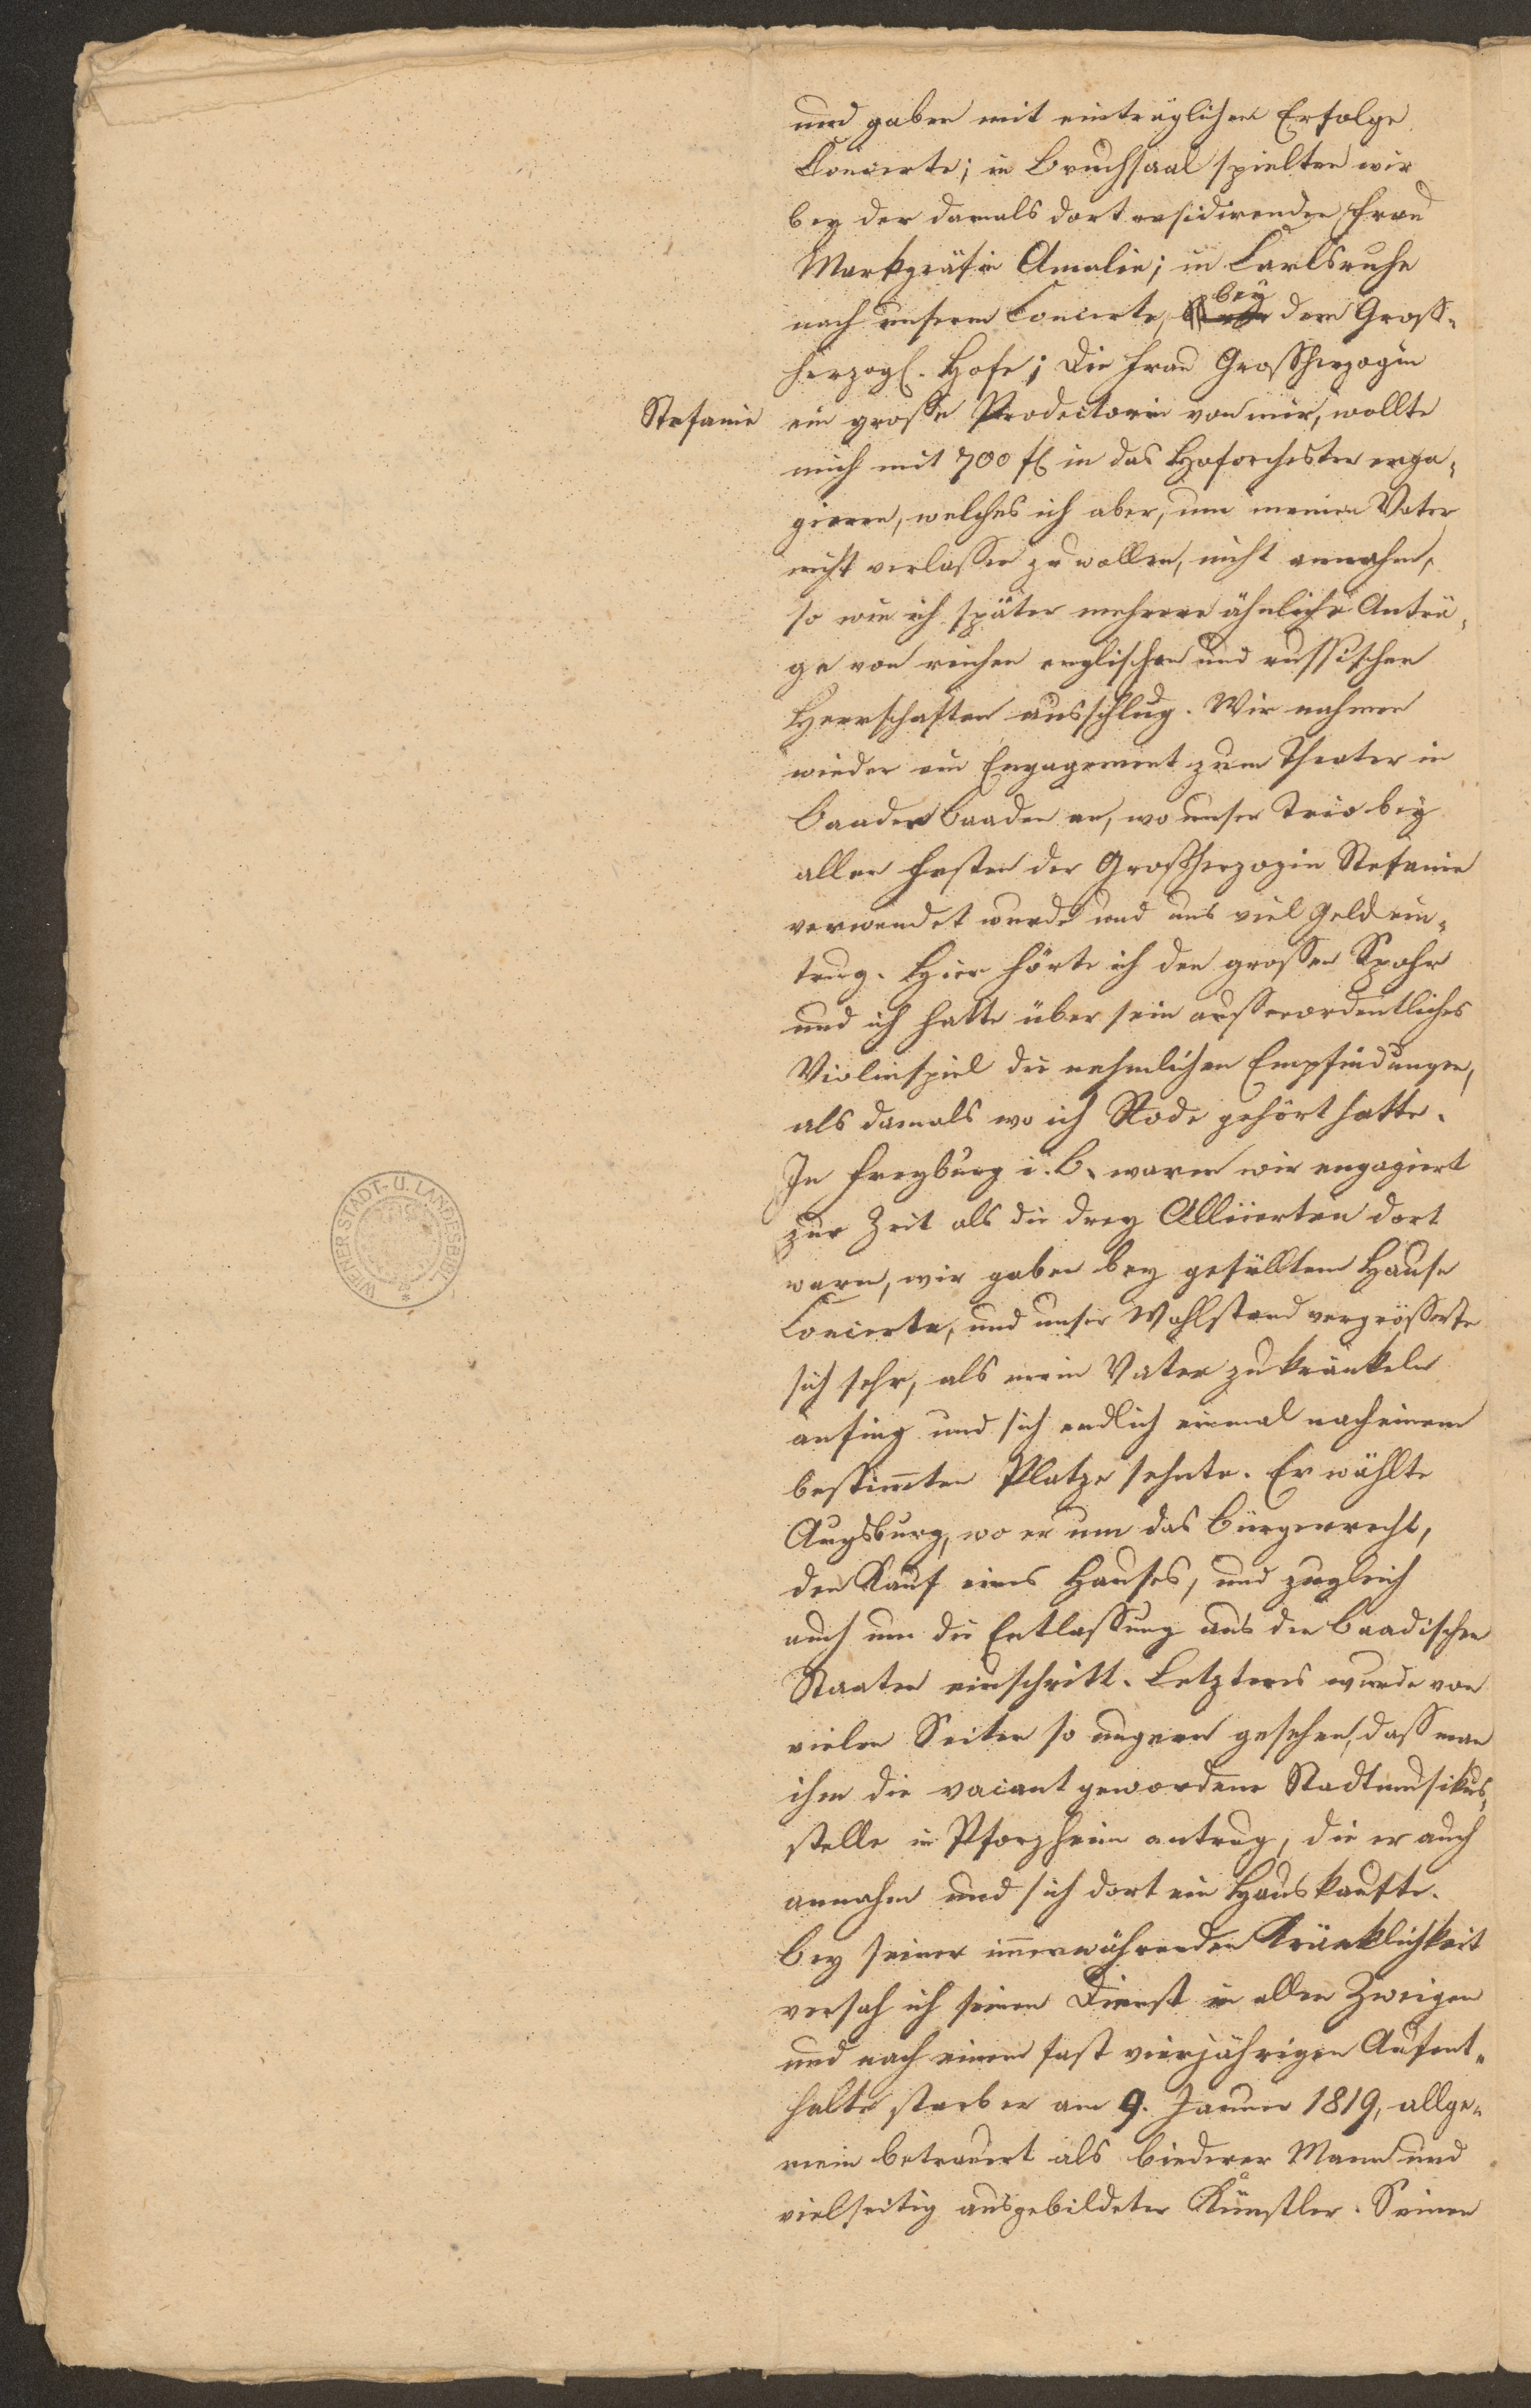 und gaben mit einträglichem Erfolge
Concerte; in Bruchsaal spielten wir
bey der damals dort residirenden Frau
Markgräfin Amalie; in Carlsruhe
bey
nach unserm Concerte, dem Gross-
herzogl. Hofe; die Frau Grossherzogin
Stefanie
ein grosse Prodectorin von mir, wollte
mich mit 700 fl in das Hoforchester enga-
gieren, welches ich aber, um meinen Vater
nicht verlassen zu wollen, nicht annahm,
so wie ich später mehrere ähnliche Anträ-
ge von reichen englischen und russischen
Herrschaften ausschlug. Wir nahmen
wieder ein Engagement zum Theater in
Baaden Baaden an, wo unser Trio bey
allen Festen der Grossherzogin Stefanie
verwendet wurde und uns viel Geld ein-
trug. Hier hörte ich den grossen Spohr
und ich hatte über sein ausserordentliches
Violinspiel die nehmlichen Empfindungen,
als damals wo ich Rode gehört hatte.
In Freyburg i. B. waren wir engagiert
zur Zeit als die drey Alliierten dort
waren, wir gaben bey gefülltem Hause
Concerte, und unser Wohlstand vergrösserte
sich sehr, als mein Vater zu kränkeln
anfing und sich endlich einmal nach einem
bestimten Platze sehnte. Er wählte
Augsburg, wo er um das Bürgerrecht,
den Kauf eines Hauses, und zugleich
auch um die Entlassung aus den baadischen
Staaten einschritt. Letzteres wurde von
vielen Seiten so ungern gesehen, dass man
ihm die vacant gewordene Stadtmusikus-
stelle in Pforzheim antrug, die er auch
annahm und sich dort ein Haus kaufte.
Bey seiner imerwährenden Kränklichkeit
versah ich seinen Dienst in allen Zweigen
und nach einem fast vierjährigen Aufent-
halte starb er am 9. Januer 1819, allge-
mein betrauert als biederer Mann und
vielseitig ausgebildeter Künstler. Seinen
WIENER STADT- U. LANDESBIBL.